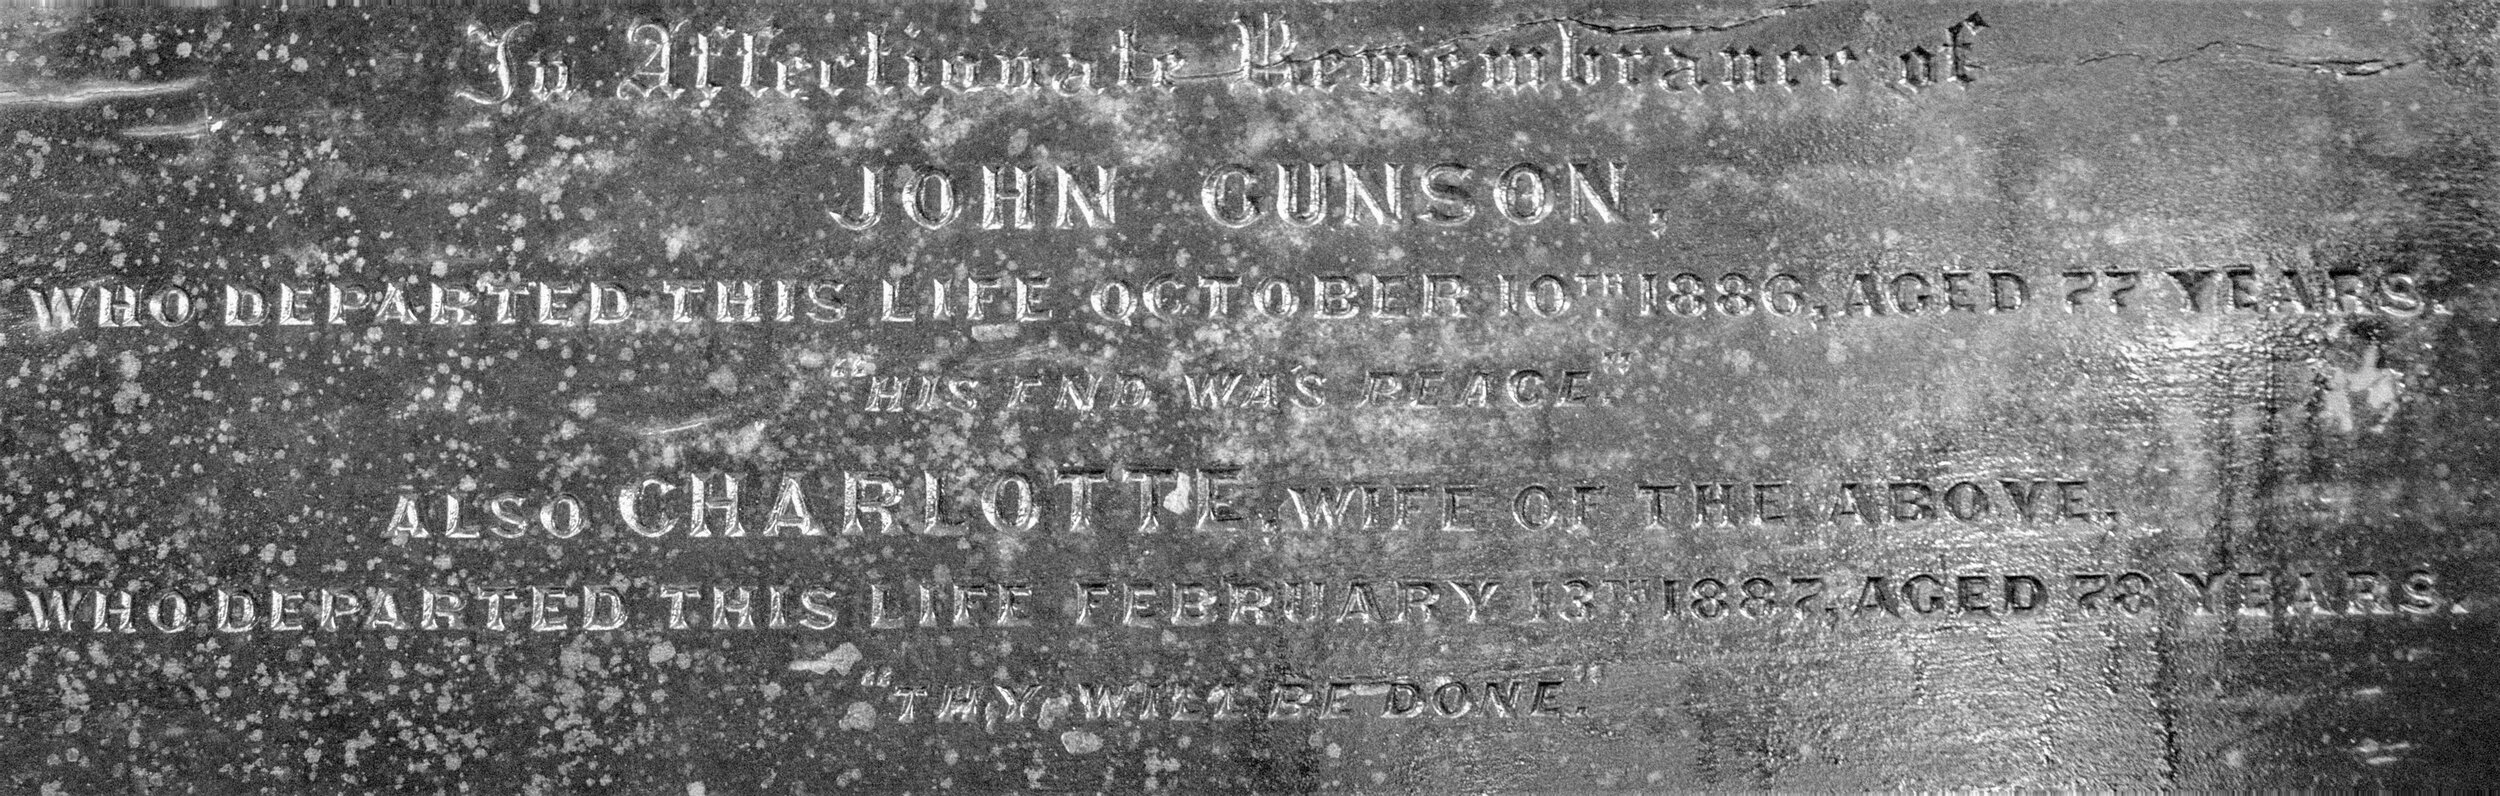 In Affectionate Remembrance of
JOHN GUNSON,
WHO DEPARTED THIS LIFE OCTOBER 10TH 1886, AGED 77 YEARS.
"HIS END WAS PEACE."
ALSO CHARLOTTE, WIFE OF THE ABOVE,
WHO DEPARTED THIS LIFE FEBRUARY 13TH 1887, AGED 78 YEARS.
"THY WILL BE DONE."